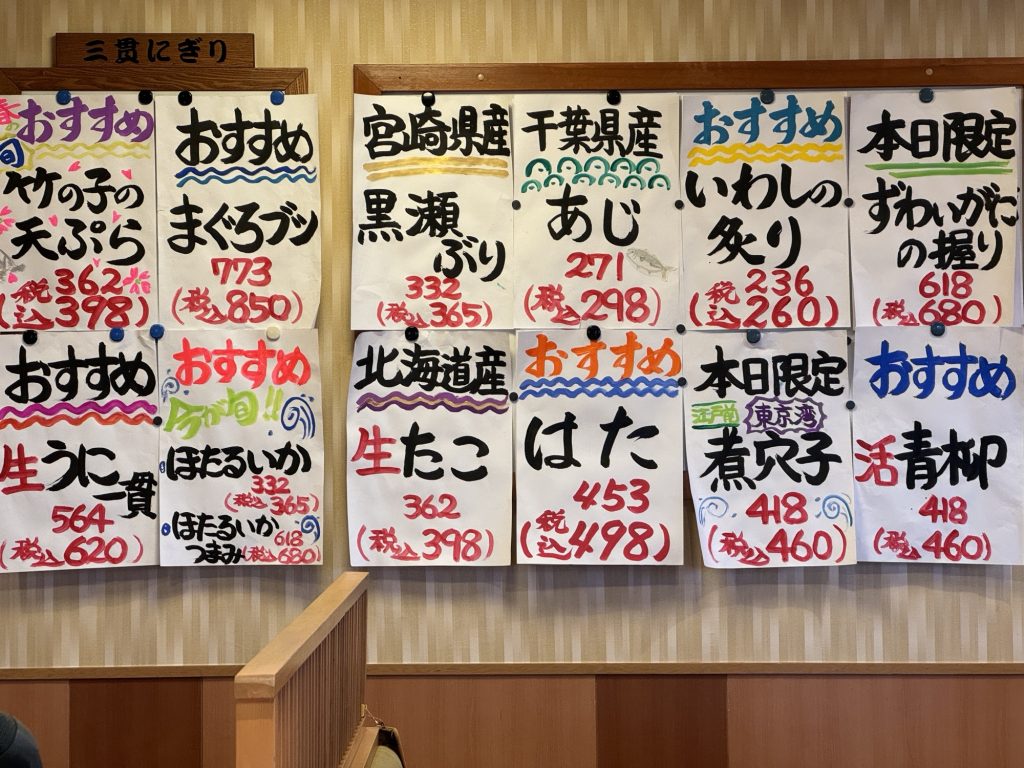 三貫にぎり
春の旬
おすすめ
竹の子の
天ぷら
362
(税込398)
おすすめ
まぐろブツ
773
(税込850)
宮崎県産
黒瀬
ぶり
332
(税込365)
千葉県産
あじ
271
(税込298)
おすすめ
いわしの
炙り
236
(税込260)
本日限定
ずわいがに
の握り
618
(税込680)
おすすめ
生うに
一貫
564
(税込620)
おすすめ
今が旬!!
ほたるいか
332
(税込365)
ほたるいか
つまみ
618
(税込680)
北海道産
生たこ
362
(税込398)
おすすめ
はた
453
(税込498)
本日限定
江戸前 東京湾
煮穴子
418
(税込460)
おすすめ
活青柳
418
(税込460)